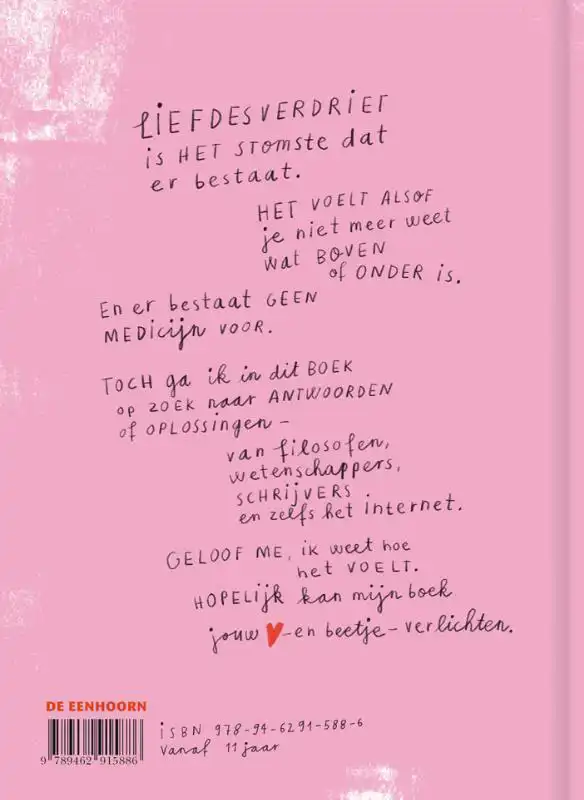 LIEFDESVERDRIET
is HET STOMSTE dat
er bestaat.
HET VOELT ALSOF
je niet meer weet
wat BOVEN
of ONDER is.
En er bestaat GEEN
MEDICIJN VOOR.
TOCH ga ik in dit BOEK
op ZOEK naar ANTWOORDEN
of OPLOSSINGEN –
van filosofen,
wetenschappers,
SCHRIJVERS
en zelfs het internet.
GELOOF ME, ik weet hoe
het VOELT.
HOPELIJK kan mijn boek
jouw ♥ – en beetje – verlichten.
DE EENHOORN
ISBN 978-94-6291-588-6
Vanaf 11 jaar
9 789462 915886